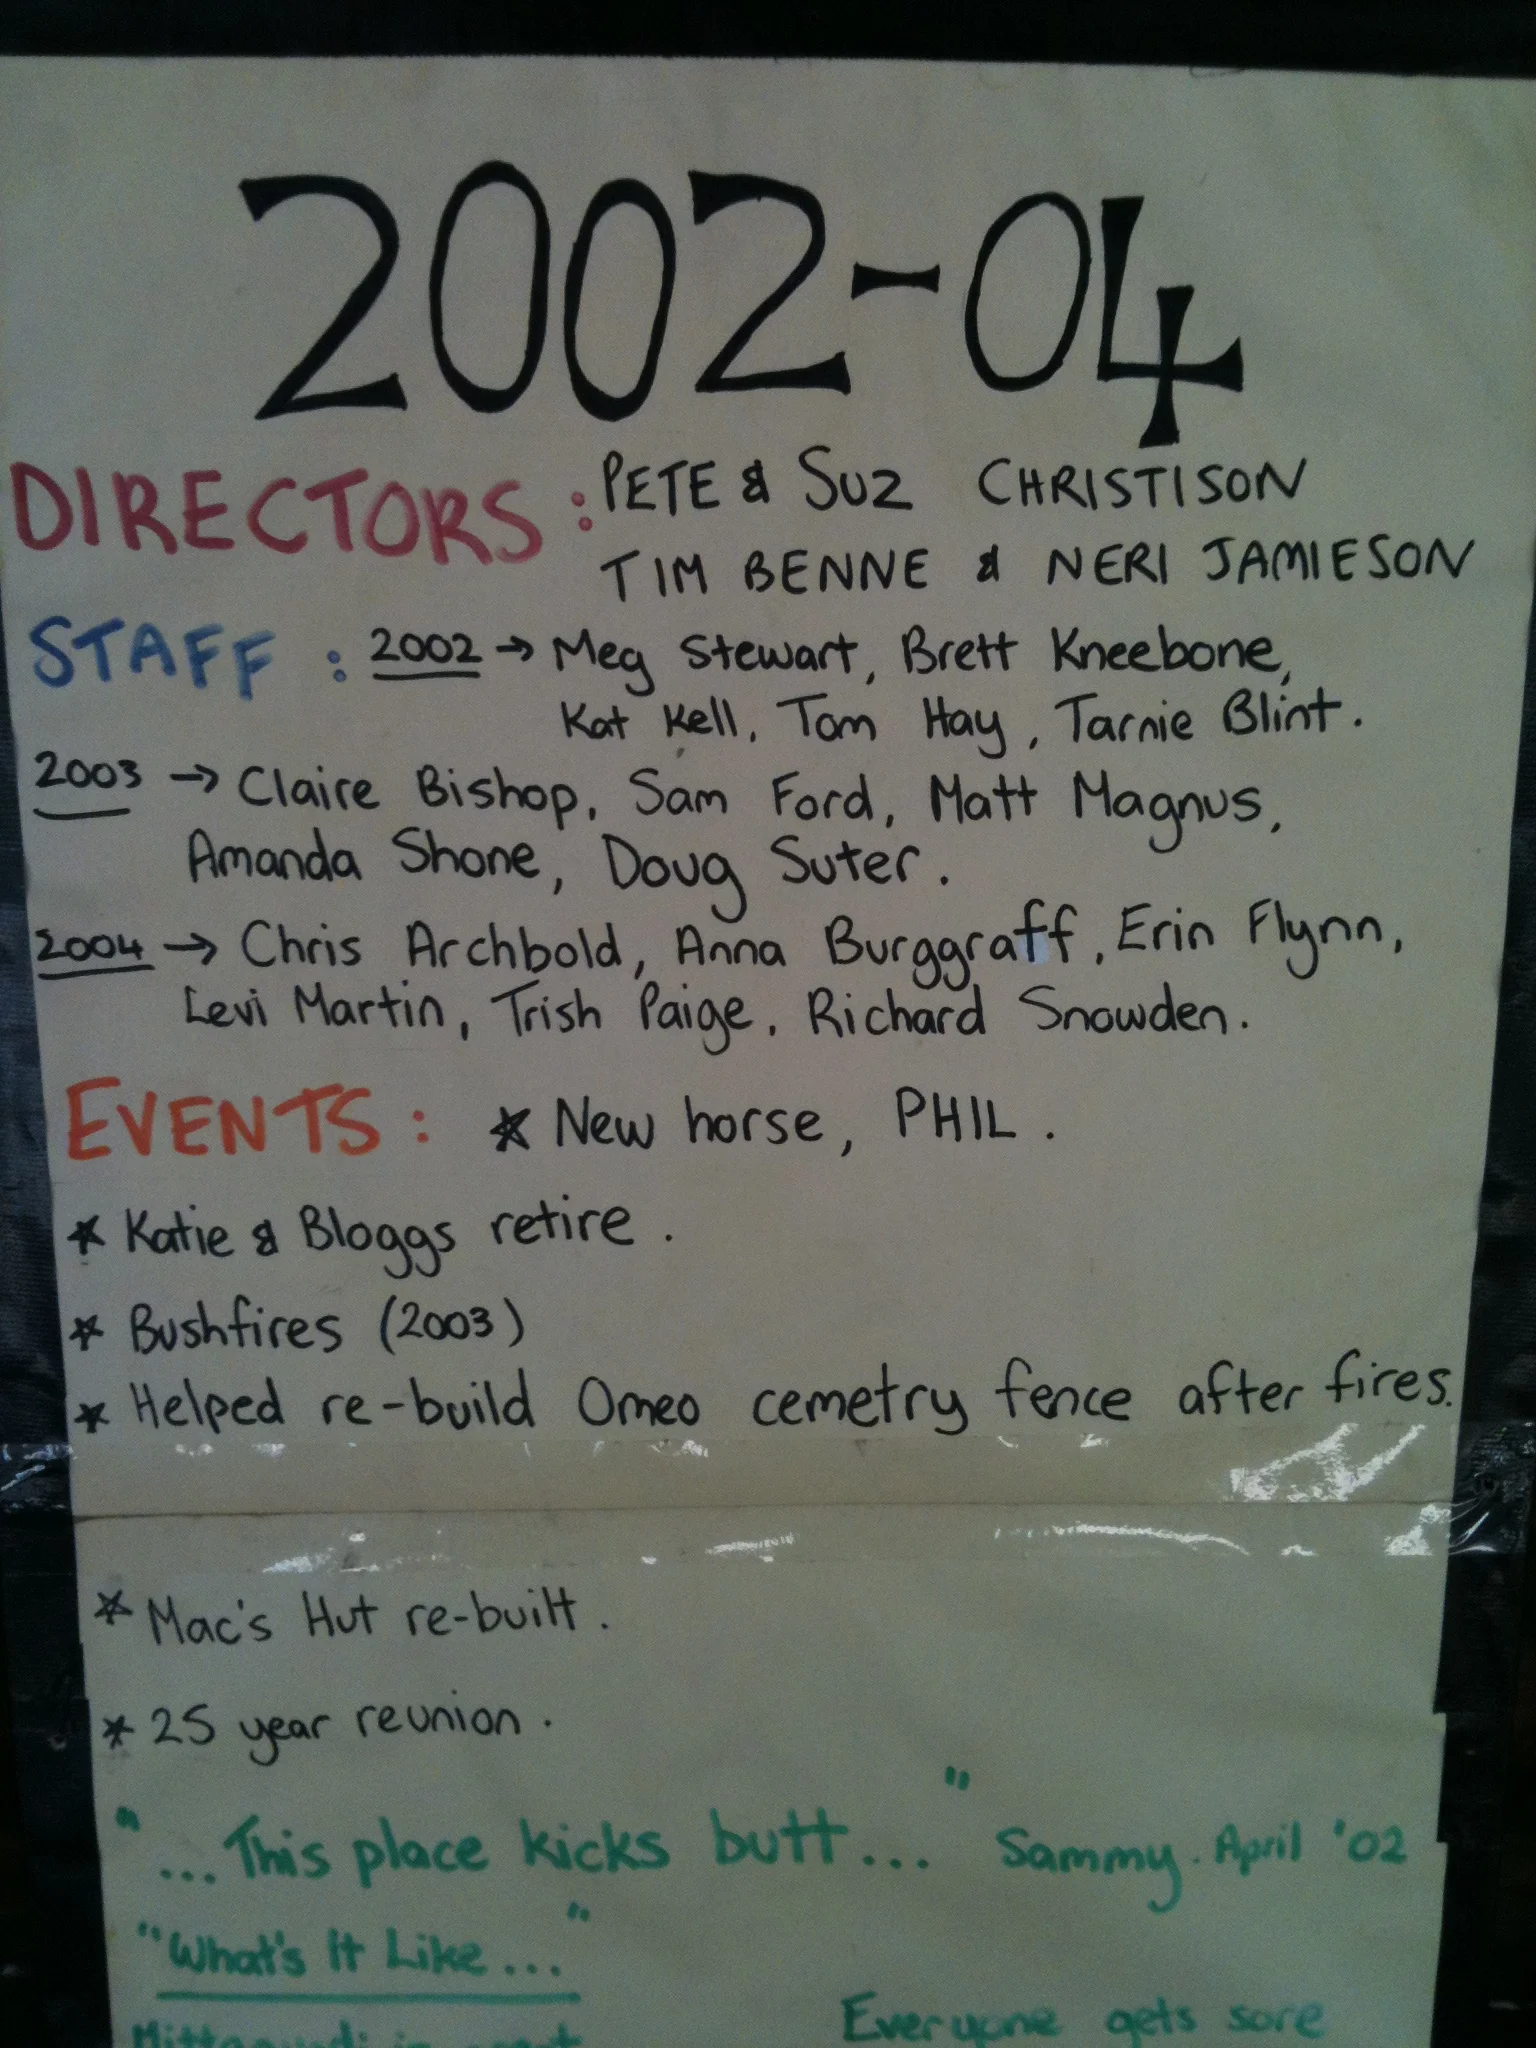 2002-04
DIRECTORS : PETE & SUZ CHRISTISON
TIM BENNE & NERI JAMIESON
STAFF : 2002 → Meg Stewart, Brett Kneebone,
Kat Kell, Tom Hay, Tarnie Blint.
2003 → Claire Bishop, Sam Ford, Matt Magnus,
Amanda Shone, Doug Suter.
2004 → Chris Archbold, Anna Burggraff, Erin Flynn,
Levi Martin, Trish Paige, Richard Snowden.
EVENTS : * New horse, PHIL.
* Katie & Bloggs retire.
* Bushfires (2003)
* Helped re-build Omeo cemetry fence after fires.
* Mac's Hut re-built.
* 25 year reunion.
"...This place kicks butt..." Sammy. April '02
"What's It Like..."
Everyone gets sore